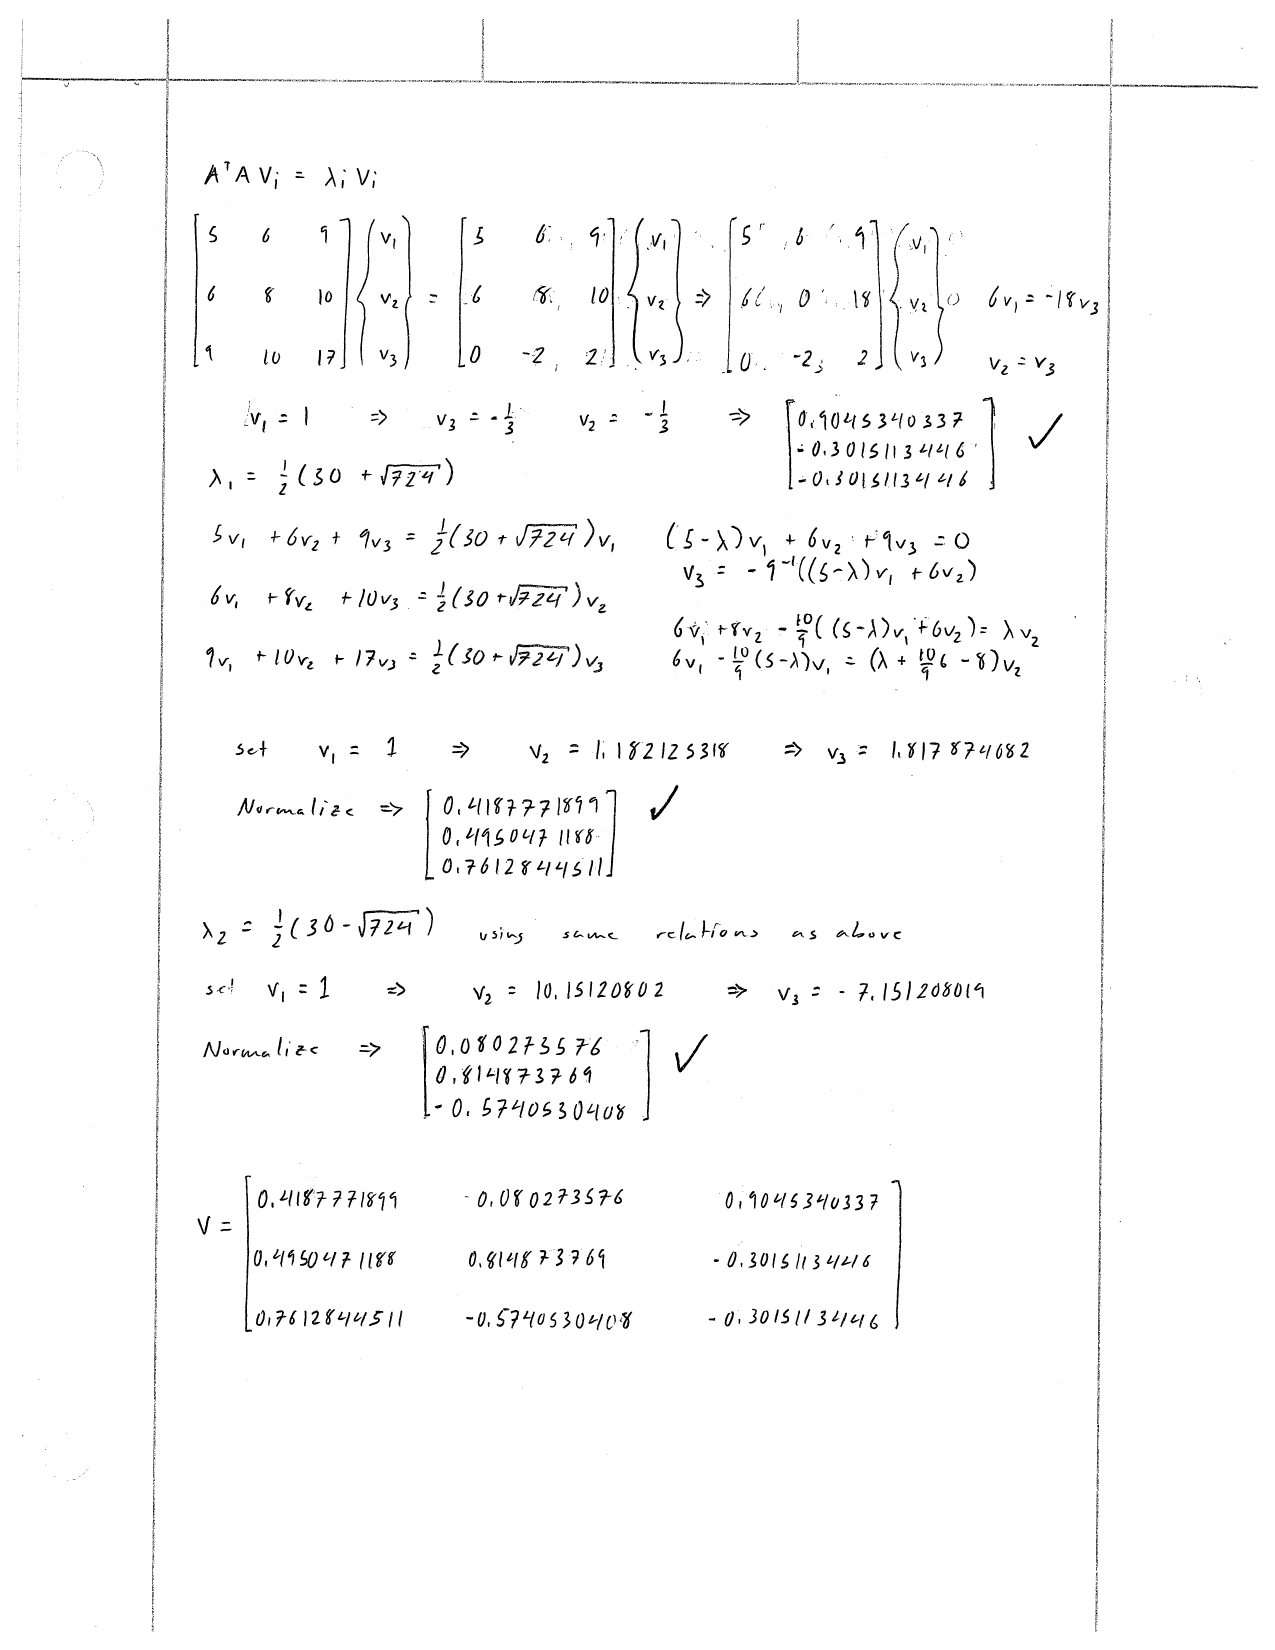 AᵀA Vᵢ = λᵢ Vᵢ
[5 6 9; 6 8 10; 9 10 17] {v₁; v₂; v₃} = [5 6 9; 6 8 10; 0 -2 2] {v₁; v₂; v₃} ⇒ [5 6 9; 6 0 18; 0 -2 2] {v₁; v₂; v₃} 0 6v₁ = -18v₃
v₂ = v₃
v₁ = 1 ⇒ v₃ = -1/3 v₂ = -1/3 ⇒ [0.9045340337; -0.3015113446; -0.3015113446] ✓
λ₁ = 1/2(30 + √724)
5v₁ + 6v₂ + 9v₃ = 1/2(30 + √724)v₁ (5-λ)v₁ + 6v₂ + 9v₃ = 0
v₃ = -9⁻¹((5-λ)v₁ + 6v₂)
6v₁ + 8v₂ + 10v₃ = 1/2(30 + √724)v₂
6v₁ + 8v₂ - 10/9((5-λ)v₁ + 6v₂) = λv₂
9v₁ + 10v₂ + 17v₃ = 1/2(30 + √724)v₃ 6v₁ - 10/9(5-λ)v₁ = (λ + 10/9 6 - 8)v₂
set v₁ = 1 ⇒ v₂ = 1.182125318 ⇒ v₃ = 1.817874682
Normalize ⇒ [0.4187771899; 0.4950471188; 0.7612844511] ✓
λ₂ = 1/2(30 - √724) using same relations as above
set v₁ = 1 ⇒ v₂ = 10.15120802 ⇒ v₃ = -7.151208019
Normalize ⇒ [0.080273576; 0.814873769; -0.5740530408] ✓
V = [0.4187771899 0.080273576 0.9045340337
0.4950471188 0.814873769 -0.3015113446
0.7612844511 -0.5740530408 -0.3015113446]